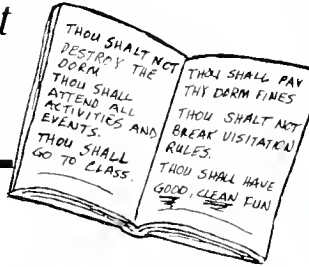 t
THOU SHALT NOT
DESTROY THE
DORM
THOU SHALL
ATTEND ALL
ACTIVITIES AND
EVENTS.
THOU SHALL
GO TO CLASS.
THOU SHALL PAY
THY DORM FINES
THOU SHALT NOT
BREAK VISITATION
RULES.
THOU SHALL HAVE
GOOD, CLEAN FUN